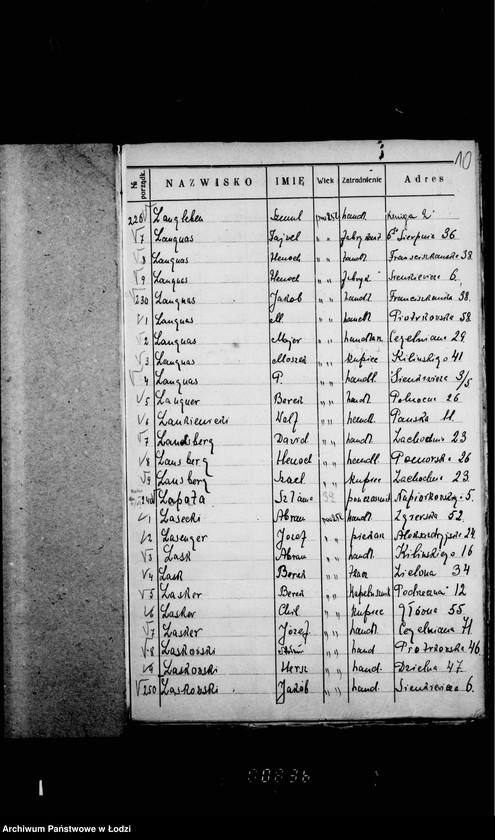 10
№ porządk. NAZWISKO IMIĘ Wiek Zatrudnienie Adres
226 Langleben Szmul handl.
7 Langnas Fajwel 6 Sierpnia 36
8 Langnas Henoch handl Franciszkańska 38.
9 Langnas Henoch Sienkiewicza 6.
230 Langnas Jakób handl Franciszkańska 38.
1 Langnas M handl Piotrkowska 58.
2 Langnas Majer handlow Cegielniana 29
3 Langnas Moszek kupiec Kilińskiego 41
4 Langnas P. handl. Sienkiewicza 3/5
5 Langner Berek handl Północna 26
6 Wolf handl. Pańska 11.
7 Landsberg David handl. Zachodnia 23
8 Lansberg Henoch handl. Pomorska 26
9 Lansberg Izrael kupiec Zachodnia 23.
240 Łapata Szlama 39 Napiórkowskiego 5.
1 Lasecki Abram handl. Zgierska 52.
2 Józef piekarz Aleksandryjska 24
3 Lask Abram handl. Kilińskiego 16
4 Lask Berek Zielona 34
5 Lasker Berek Podrzeczna 12
6 Lasker Chil kupiec Główna 55
7 Lasker Józef handl Cegielniana 71.
8 Laskowski hand Piotrkowska 46
9 Laskowski Hersz hand. Dzielna 47
250 Laskowski Jakób hand. Sienkiewicza 6.
Archiwum Państwowe w Łodzi